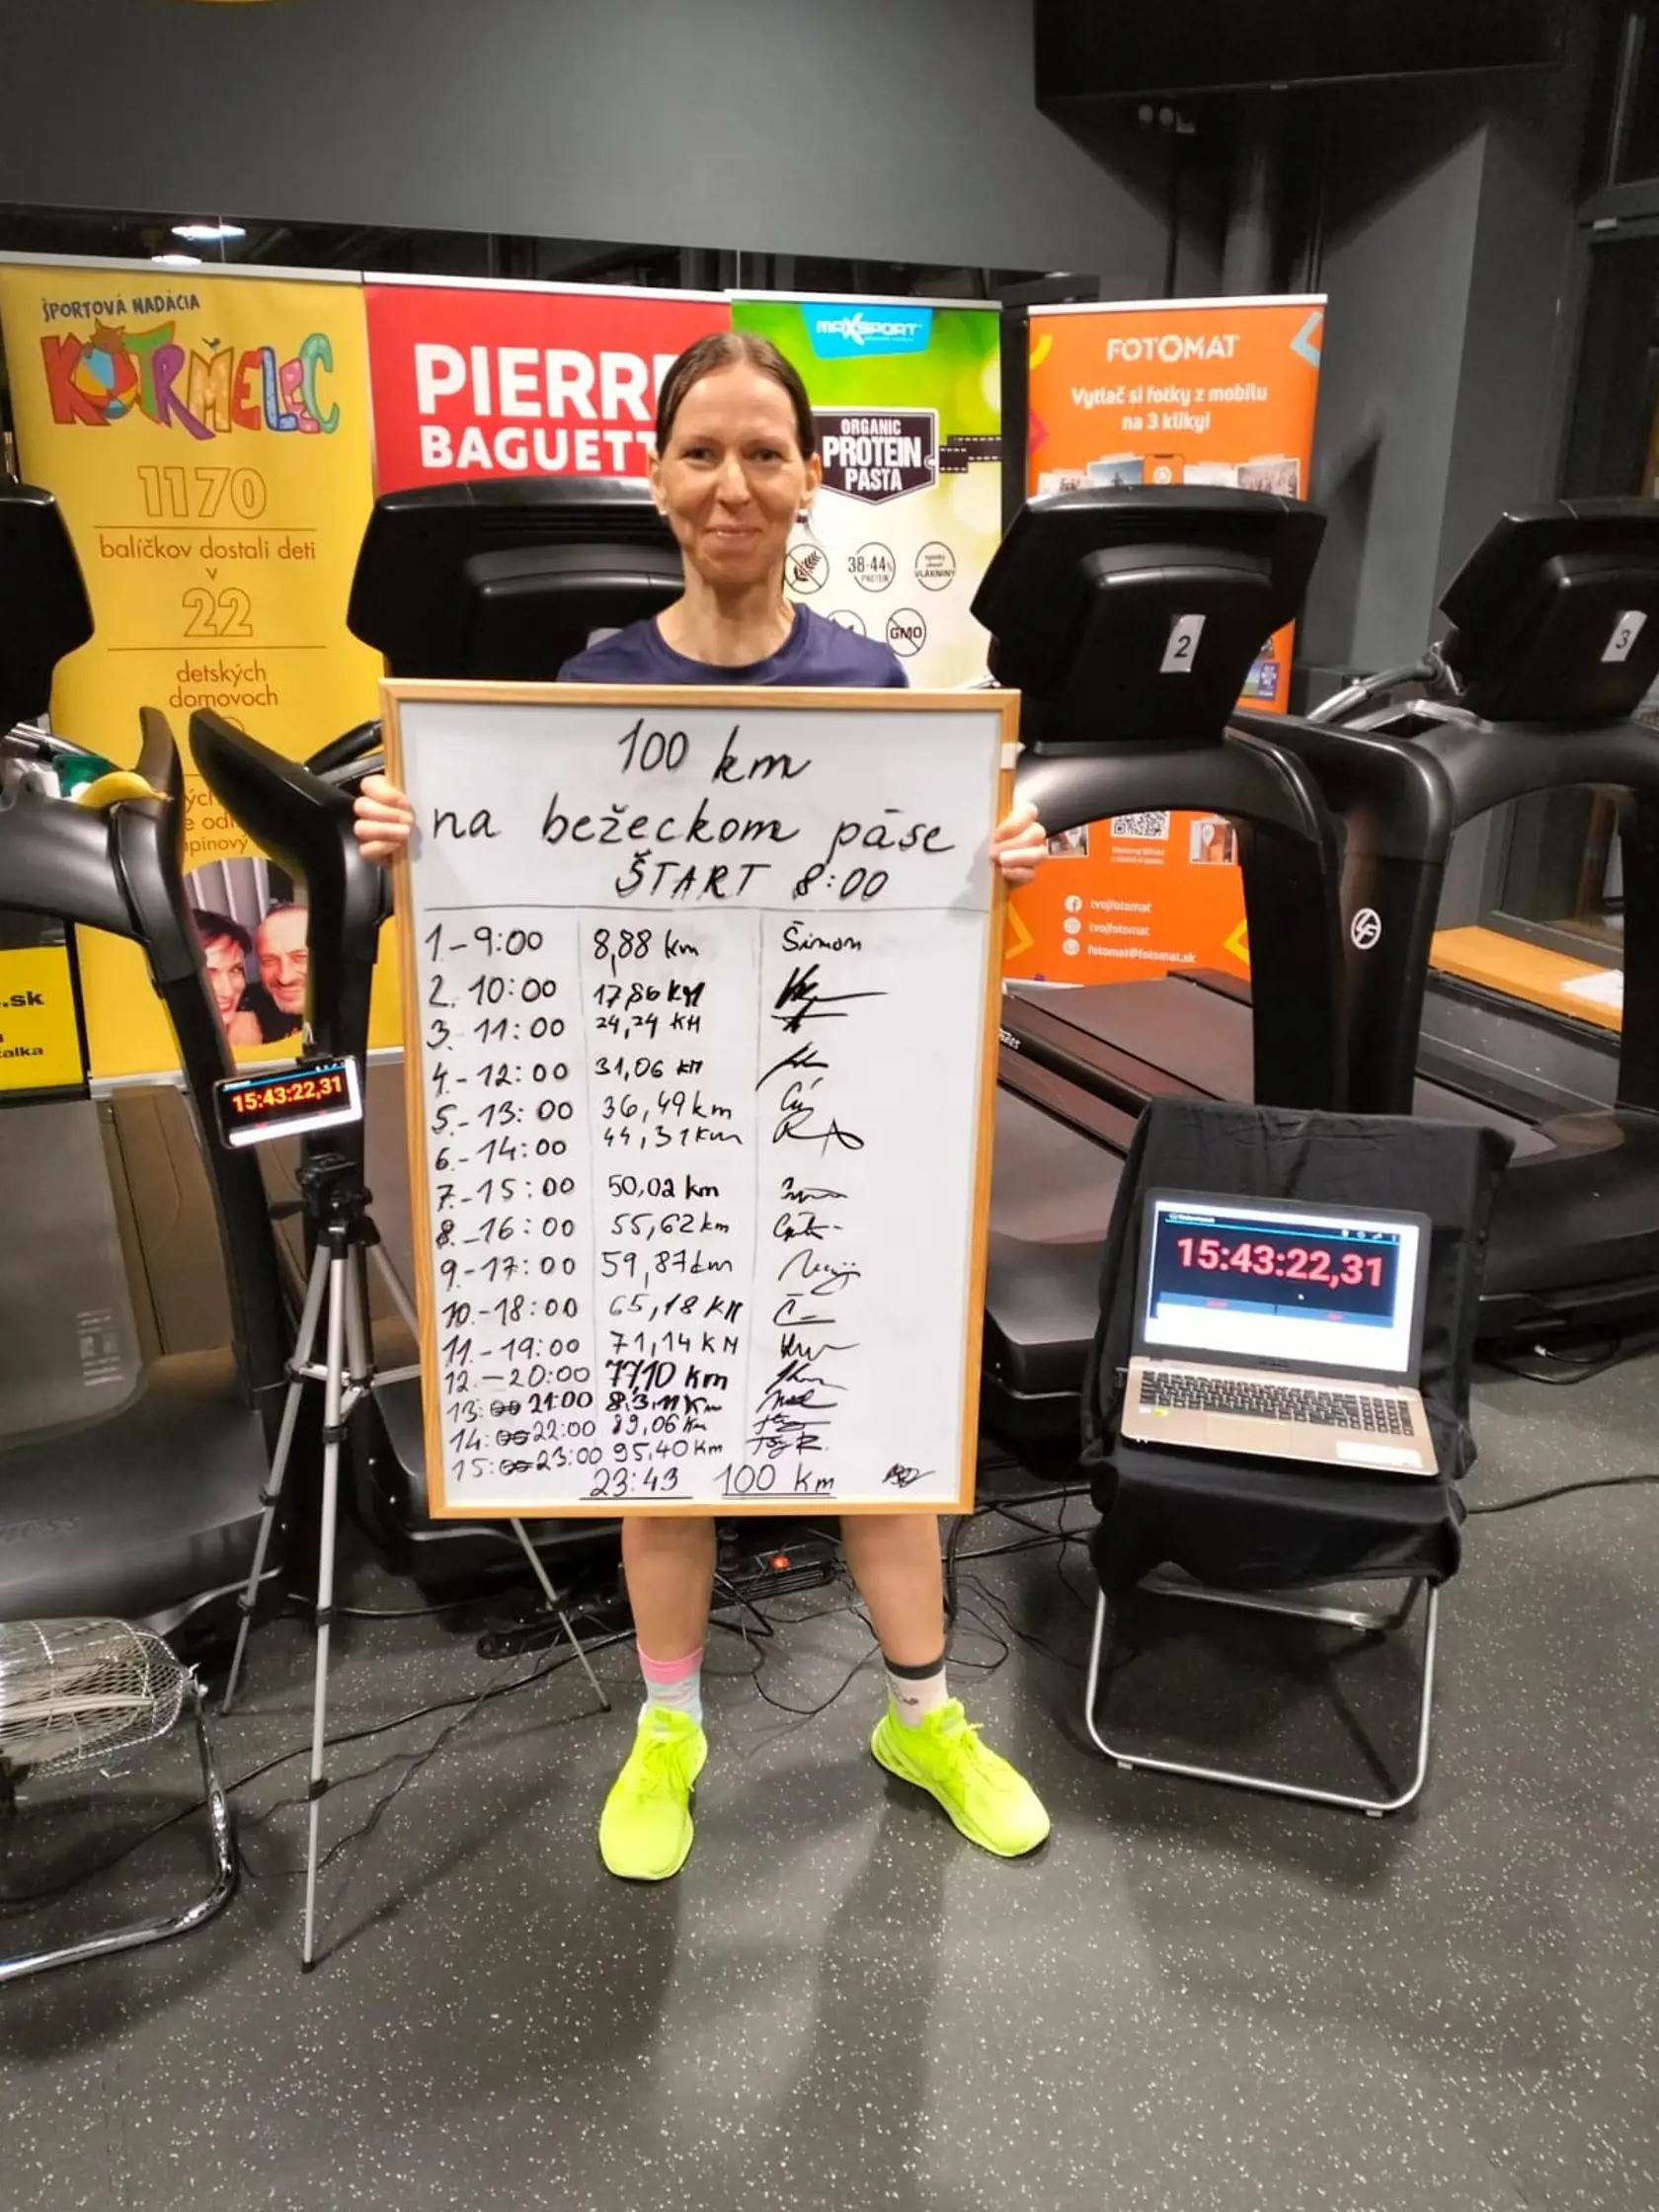 ŠPORTOVÁ NADÁCIA
KOTRMELEC
1170
balíčkov dostali deti
v
22
detských
domovoch
.sk
PIERRE
BAGUETT
MAXSPORT
ORGANIC
PROTEIN
PASTA
38-44%
PROTEIN
VLÁKNINY
GMO
FOTOMAT
Vytlač si fotky z mobilu
na 3 kliky!
tvojfotomat
tvojfotomat
fotomat@fotomat.sk
2
3
100 km
na bežeckom páse
ŠTART 8:00
1.-9:00 8,88 km Šimon
2. 10:00 17,86 KM
3. 11:00 24,24 KM
4.-12:00 31,06 KM
5.-13:00 36,49 km
6.-14:00 44,31 km
7.-15:00 50,02 km
8.-16:00 55,62 km
9.-17:00 59,87 km
10.-18:00 65,18 KM
11.-19:00 71,14 KM
12.-20:00 77,10 km
13: 21:00 83,11 Km
14: 22:00 89,06 Km
15: 23:00 95,40 Km
23:43 100 km
15:43:22,31
15:43:22,31